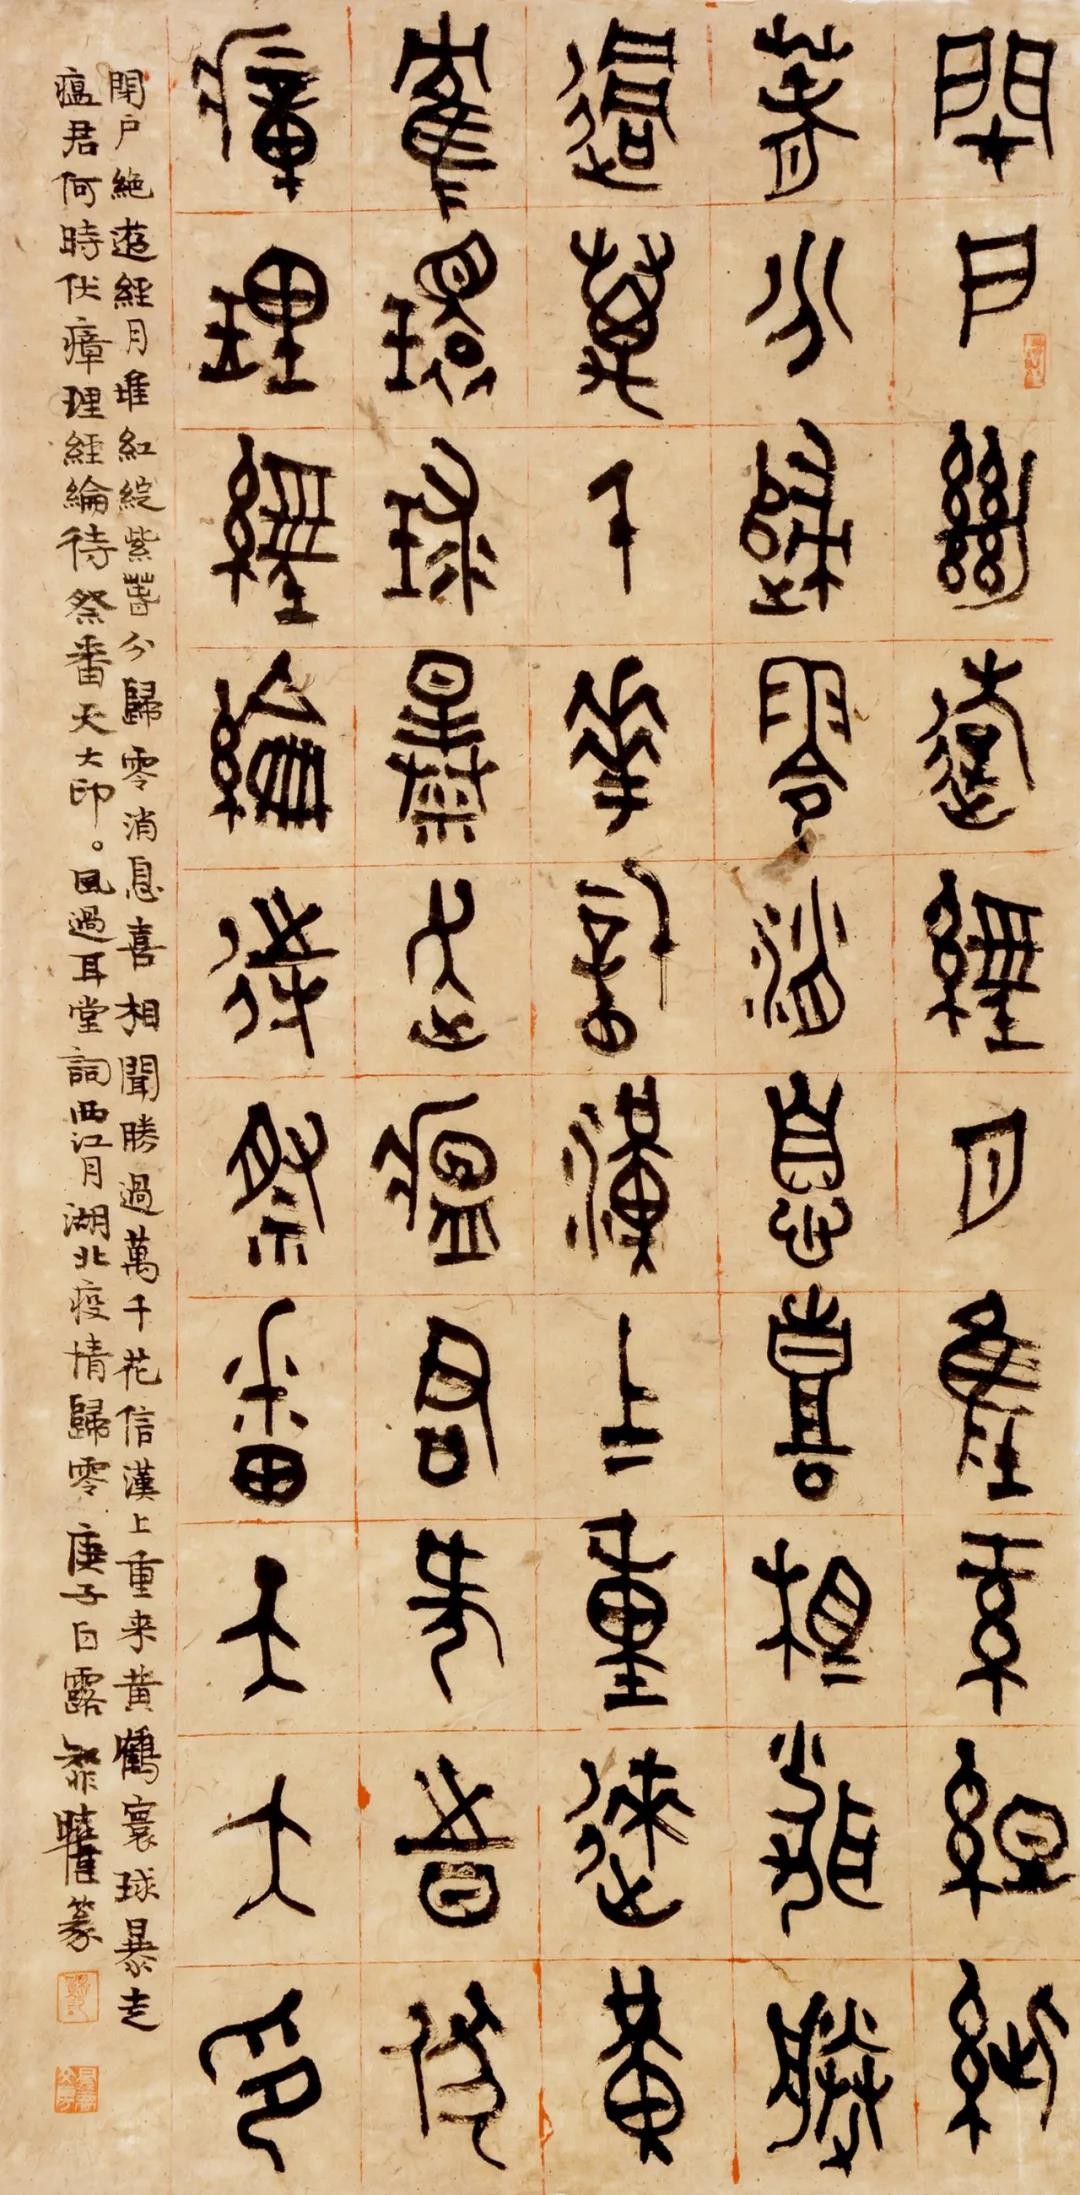 閉戶絕遊經月堆紅綻紫
萅分歸零消息喜相聞勝
過萬千花信漢上重來黃
鶴環球暴走瘟君何時伏
瘴理經綸待祭番天大印
閉戶絕遊經月堆紅綻紫萅分歸零消息喜相聞勝過萬千花信漢上重来黃鶴寰球暴走
瘟君何時伏瘴理經綸待祭番天大印。風過耳堂詞西江月湖北疫情歸零 庚子白露 篆